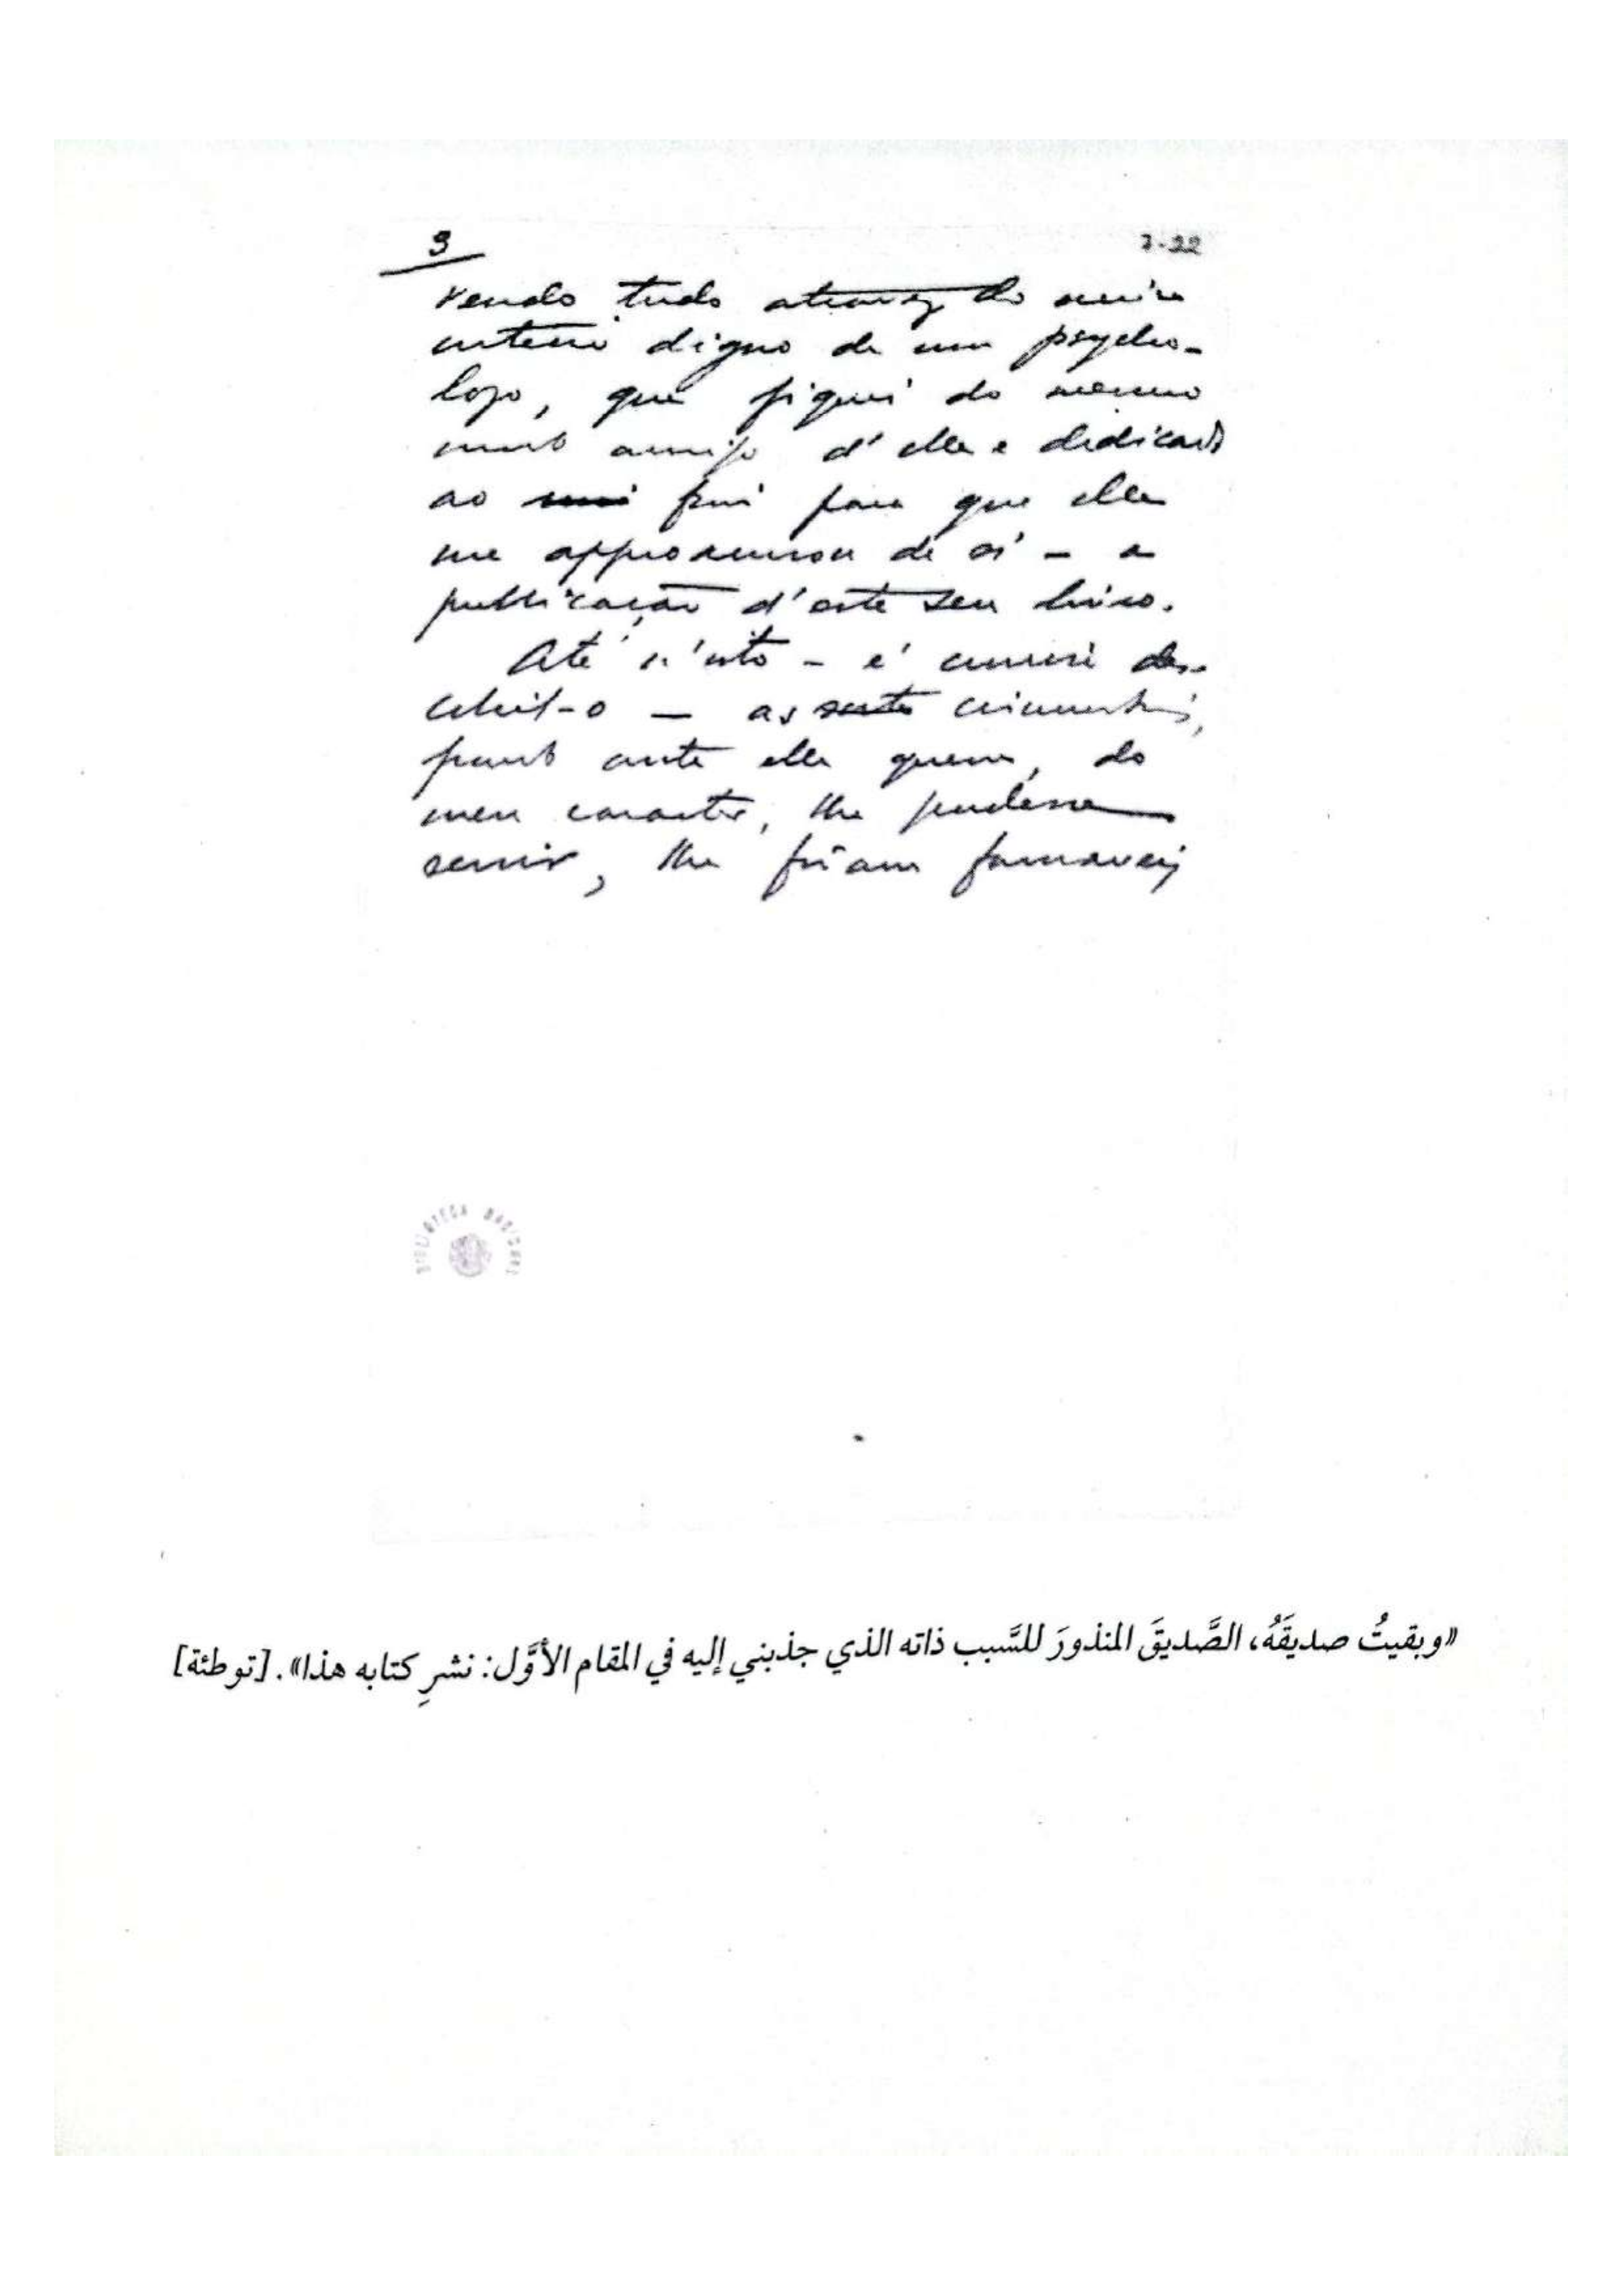 3
7-22
Vendo tudo atravez do unico
criterio digno de um psycho-
logo, que fiquei do mesmo
modo amigo d'elle e dedicado
ao fim para que elle
me approximou de si — a
publicação d'este seu livro.
Até n'isto — é curioso des-
cobril-o — as circumstancias,
pondo ante elle quem, do
meu caracter, lhe pudesse
servir, lhe foram favoraveis
BIBLIOTECA NACIONAL
«وبقيتُ صديقَهُ، الصَّديقَ المنذورَ للسَّبب ذاته الذي جذبني إليه في المقام الأوَّل: نشرِ كتابه هذا». [توطئة]